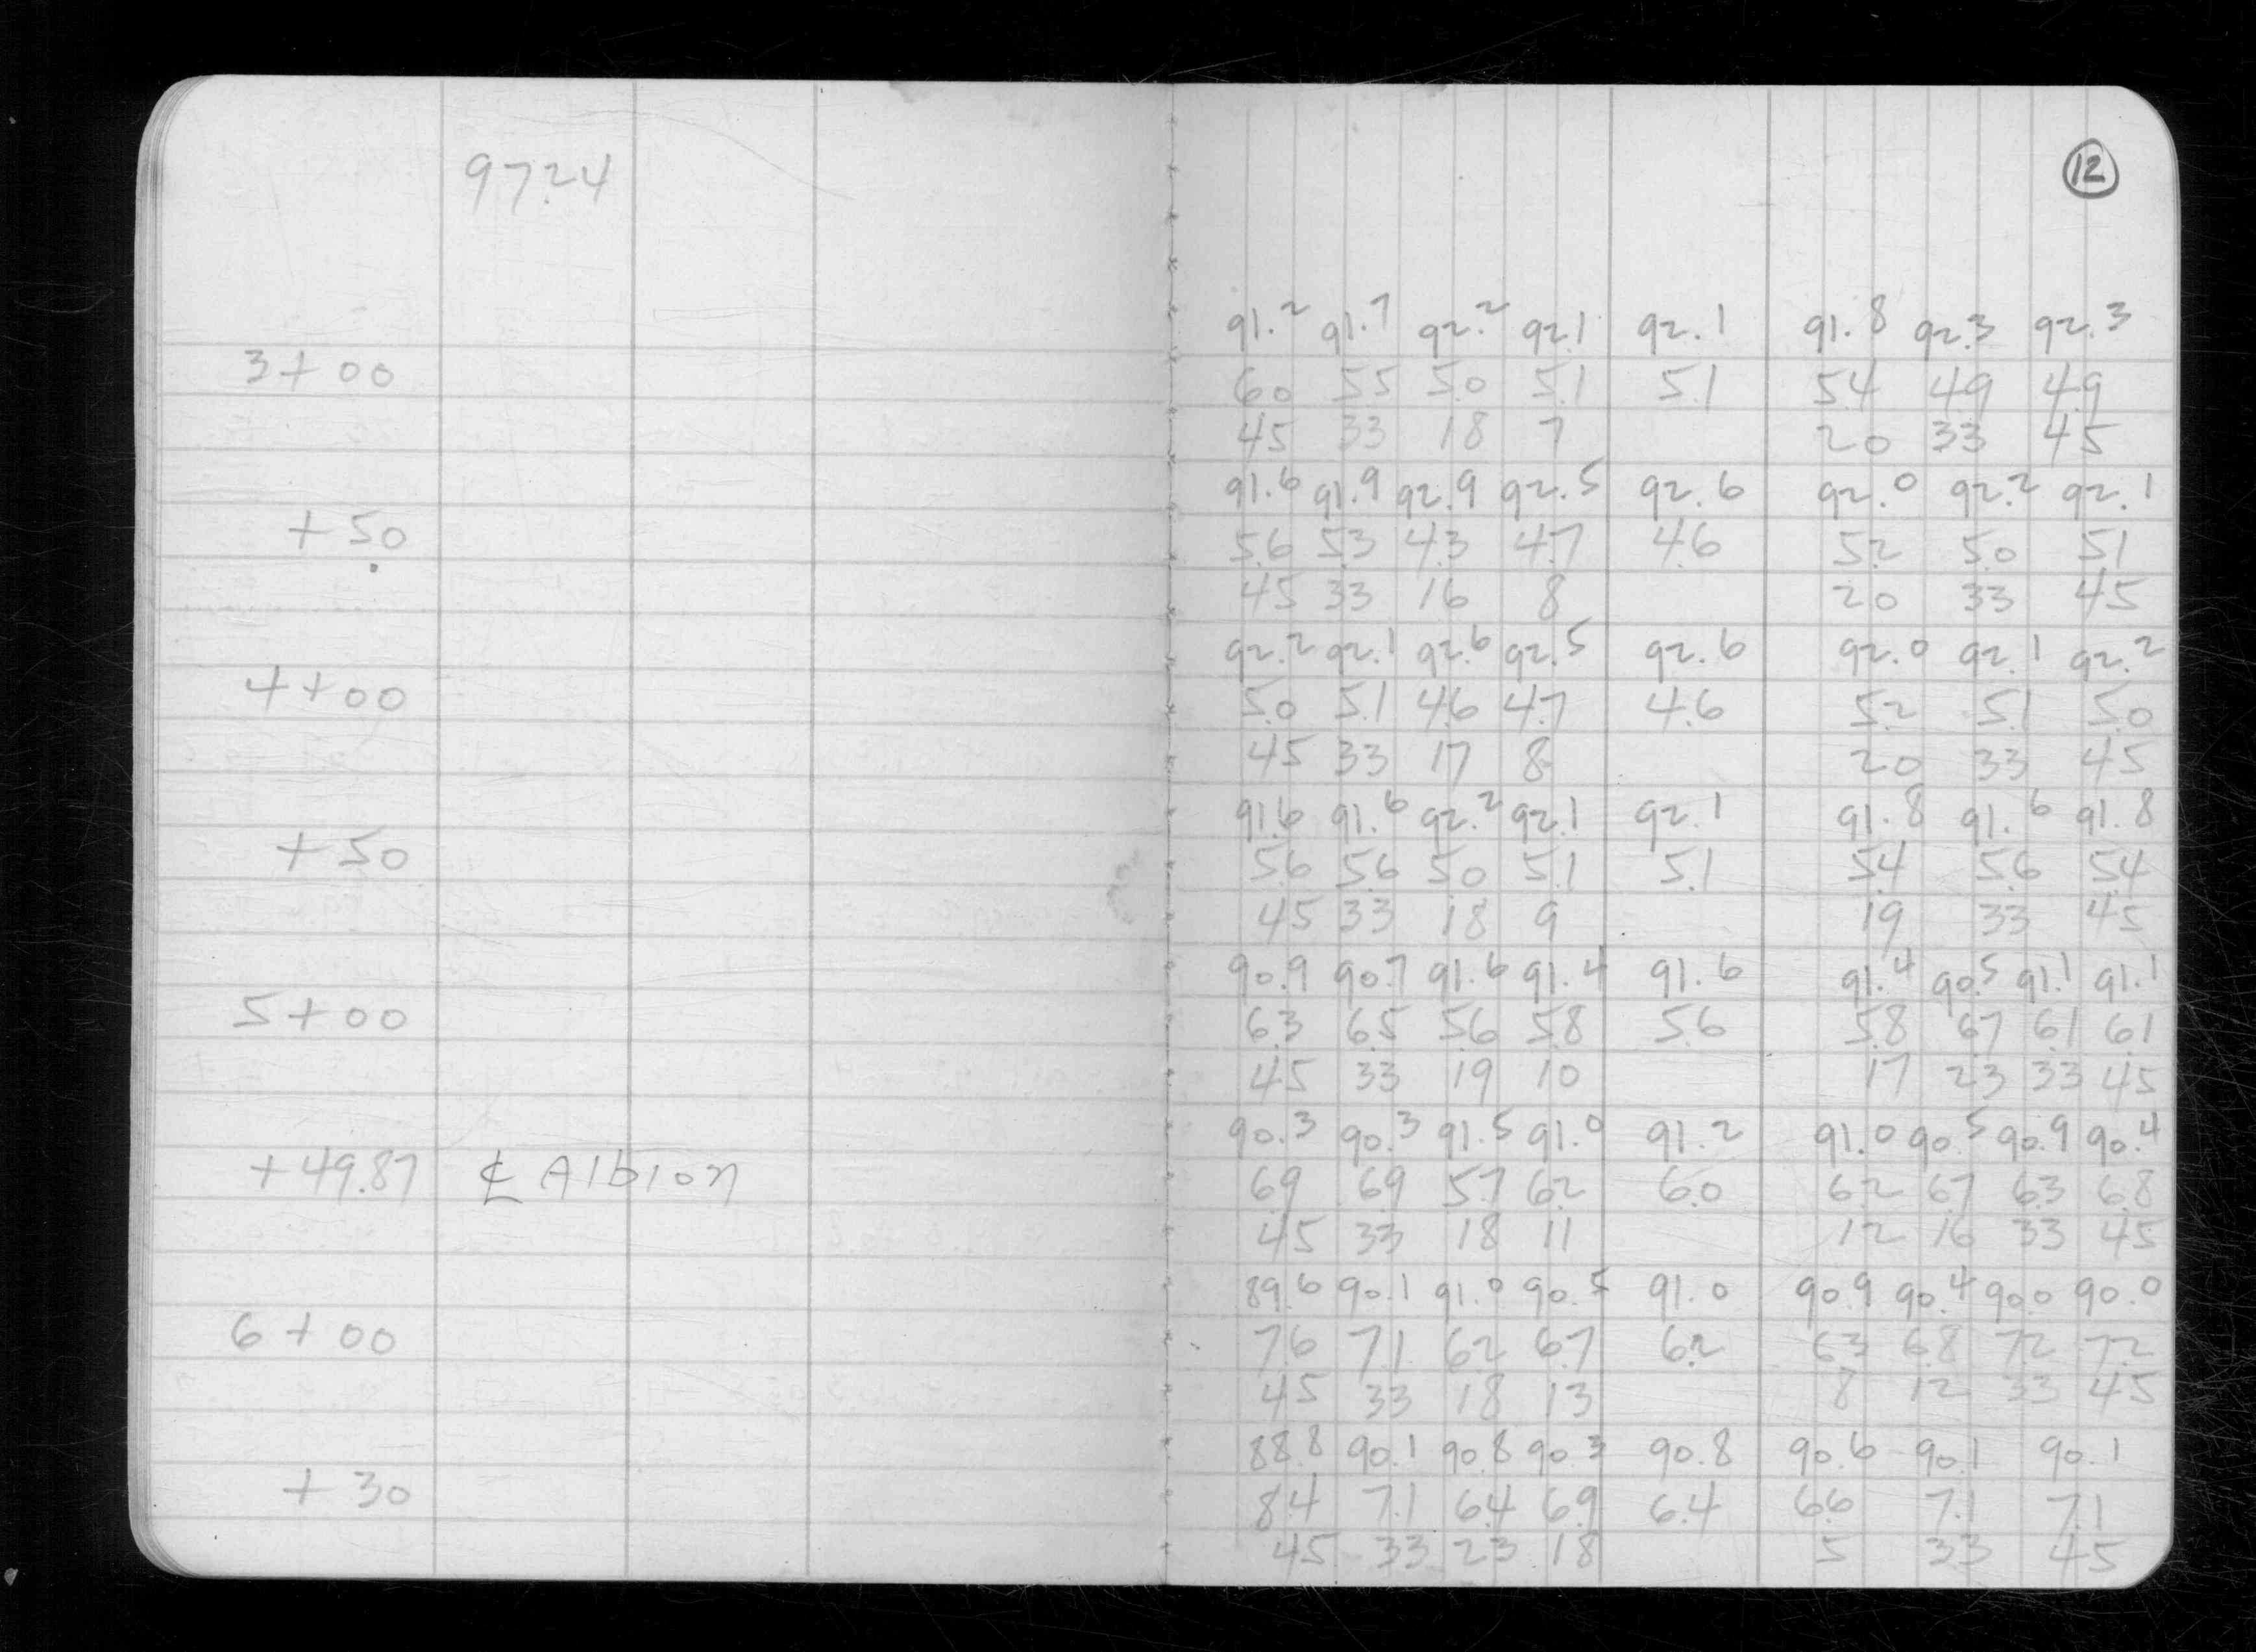 97.24
12
91.2 91.7 92.2 92.1 92.1 91.8 92.3 92.3
3+00 6.0 5.5 5.0 5.1 5.1 5.4 4.9 4.9
45 33 18 7 20 33 45
91.6 91.9 92.9 92.5 92.6 92.0 92.2 92.1
+50 5.6 5.3 4.3 4.7 4.6 5.2 5.0 5.1
45 33 16 8 20 33 45
92.2 92.1 92.6 92.5 92.6 92.0 92.1 92.2
4+00 5.0 5.1 4.6 4.7 4.6 5.2 5.1 5.0
45 33 17 8 20 33 45
91.6 91.6 92.2 92.1 92.1 91.8 91.6 91.8
+50 5.6 5.6 5.0 5.1 5.1 5.4 5.6 5.4
45 33 18 9 19 33 45
90.9 90.7 91.6 91.4 91.6 91.4 90.5 91.1 91.1
5+00 6.3 6.5 5.6 5.8 5.6 5.8 6.7 6.1 6.1
45 33 19 10 17 23 33 45
90.3 90.3 91.5 91.0 91.2 91.0 90.5 90.9 90.4
+49.87 ℄ Albion 6.9 6.9 5.7 6.2 6.0 6.2 6.7 6.3 6.8
45 33 18 11 12 16 33 45
89.6 90.1 91.0 90.5 91.0 90.9 90.4 90.0 90.0
6+00 7.6 7.1 6.2 6.7 6.2 6.3 6.8 7.2 7.2
45 33 18 13 8 12 33 45
88.8 90.1 90.8 90.3 90.8 90.6 90.1 90.1
+30 8.4 7.1 6.4 6.9 6.4 6.6 7.1 7.1
45 33 23 18 5 33 45